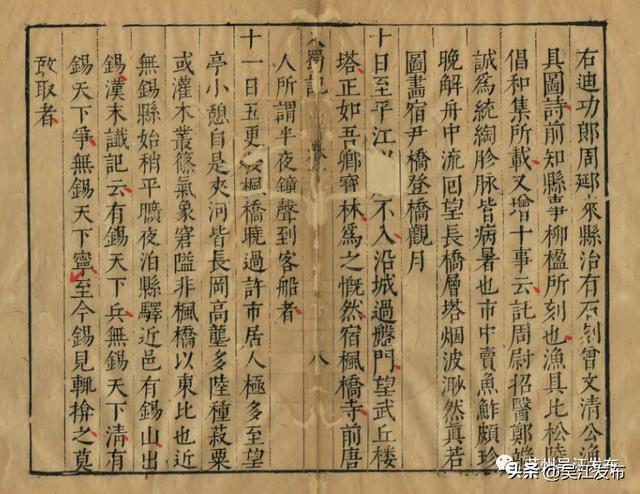 右迪功郎周郔來縣治有石刻曾文清公漁
具圖詩前知縣事柳楹所刻也漁具比松陵
倡和集所載又增十事云託周尉招醫鄭端
誠爲統綯胗脉皆病暑也市中賣魚鮓頗珍
晚解舟中流回望長橋層塔烟波渺然真若
圖畫宿尹橋登橋觀月
十日至平江不入沿城過盤門望武丘樓
塔正如吾鄉寶林爲之慨然宿楓橋寺前唐
蜀記 八
人所謂半夜鐘聲到客船者
十一日五更楓橋曉過許市居人極多至望
亭小憩自是夾河皆長岡高壟多陸種菽粟
或灌木叢篠氣象窘隘非楓橋以東比也近
無錫縣始稍平曠夜泊縣驛近邑有錫山出
錫漢末讖記云有錫天下兵無錫天下清有
錫天下爭無錫天下寧至今錫見輒揜之莫
敢取者
苏州吴江发布
头条@吴江发布